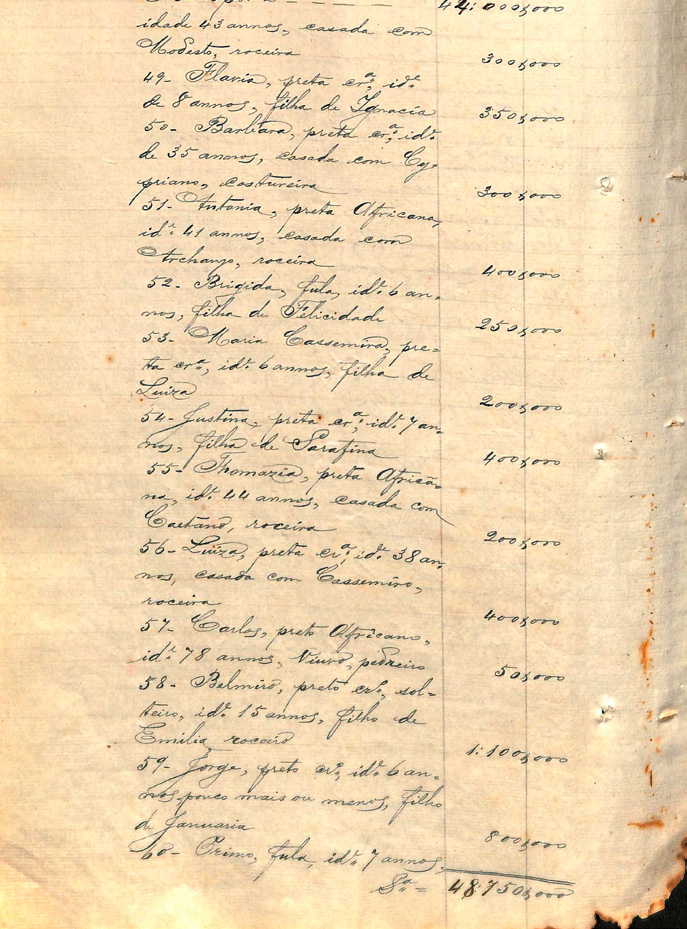 44:000$000
idade 43 annos, casada com
Modesto, roceira 300$000
49- Flavia, preta crª, idᵉ
de 8 annos, filha de Ignacia 350$000
50- Barbara, preta crª, idᵉ
de 35 annos, casada com Cy-
priano, costureira 300$000
51- Antonia, preta Africana,
idᵉ 41 annos, casada com
Archanjo, roceira 400$000
52- Brigida, fula, idᵉ 6 an-
nos, filha de Felicidade 250$000
53- Maria Cassemira, pre-
ta crª, idᵉ 6 annos, filha de
Luiza 200$000
54- Justina, preta crª, idᵉ 7 an-
nos, filha de Sarafina 400$000
55- Thomazia, preta Africa-
na, idᵉ 44 annos, casada com
Caetano, roceira 200$000
56- Luiza, preta crª, idᵉ 38 an-
nos, casada com Cassemiro,
roceira 400$000
57- Carlos, preto Africano,
idᵉ 78 annos, Viuvo, pedreiro 50$000
58- Belmiro, preto crº, sol-
teiro, idᵉ 15 annos, filho de
Emilia, roceiro 1:100$000
59- Jorge, preto crº, idᵉ 6 an-
nos pouco mais ou menos, filho
de Januaria 800$000
60- Primo, fula, idᵉ 7 annos,
Sª = 48:750$000